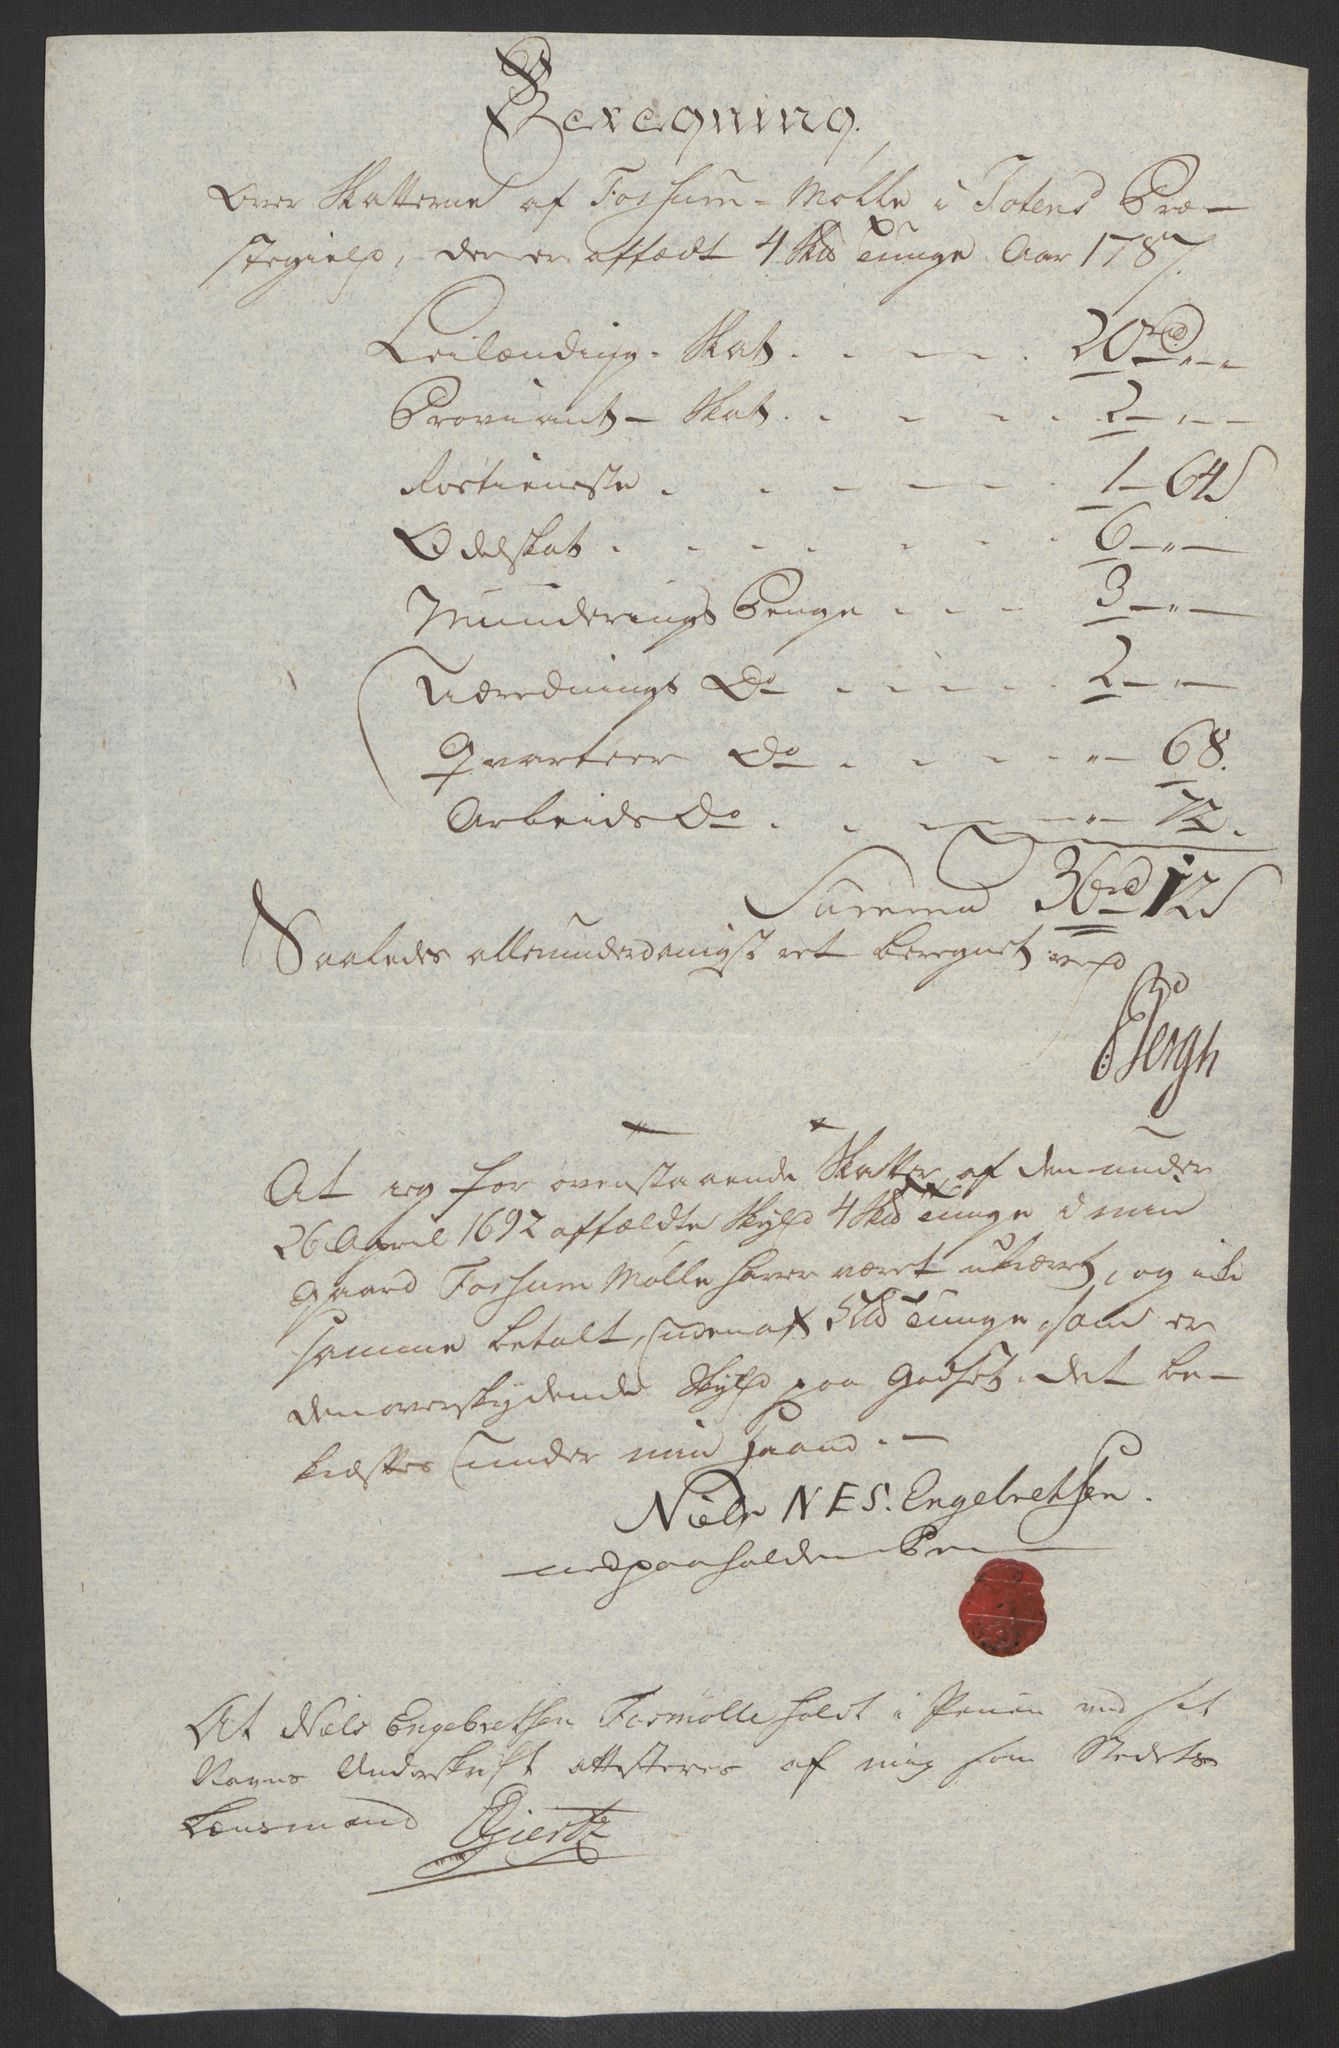 Beregning
Over Skatterne af Fossum-Mølle i Totens Præ-
stegield, der er affældt 4 Skd Tunge Aar 1787.
Leilændings-Skat . . . 20 rd „ -
Proviant-Skat . . . 2 - „ -
Rostieneste . . . 1 - 64 s
Odelskat . . . 6 - „ -
Munderings Penge . . . 3 - „ -
Udrednings Do . . . 2 - „ -
Qvarteer Do . . . „ - 68.
Arbeids Do . . . „ - 72.
Summa 36 rd 12 s
Saaledes allerunderdanigst ret beregnet ved
Bergh
At ieg for ovenstaaende Skatter af den under
26 April 1692 affældte Skyld 4 Skd Tunge i min
Gaard Fossum Mølle haver været ukrævet, og ikke
samme betalt, uden af 5 Skd Tunge, som er
den overskydende Skyld paa Godset. Det be-
kræftes under min Haand. -
Niels N E S. Engebretsen.
med paaholden Pen
At Niels Engebretsen Fosmølle holdt i Pennen ved sit
Navns Underskrift attesteres af mig som Stedets
Lænsmand Giertz